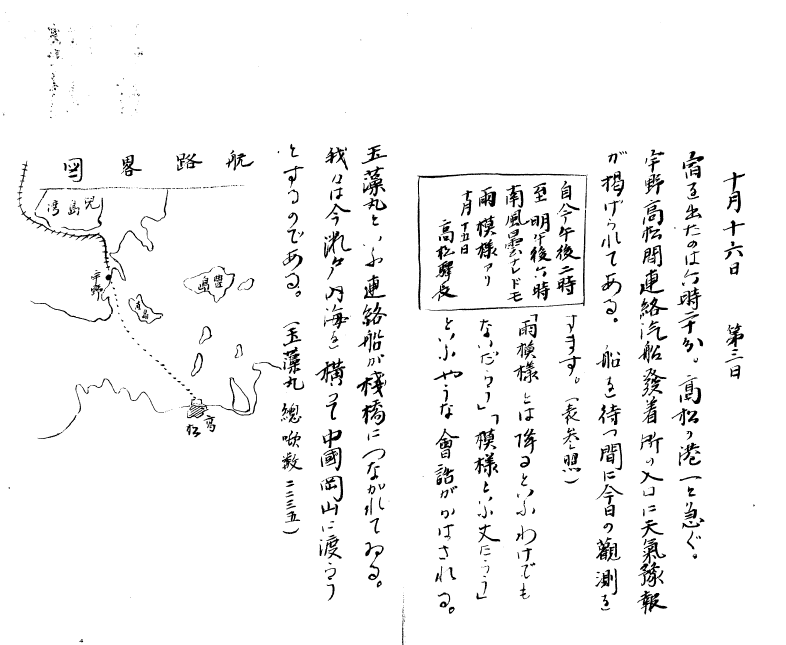 十月十六日　第三日
宿を出たのは六時二十分。高松の港へと急ぐ。
宇野高松間連絡汽船發着所の入口に天氣豫報
が掲げられてある。船を待つ間に今日の觀測を
すます。（表参照）
自今午後二時
至明午後六時
南風曇ナレドモ
雨模様アリ
十月十五日
高松驛長
「雨模様とは降るといふわけでも
ないだらう」「模様といふ丈だらう」
といふやうな會話がかはされる。
玉藻丸といふ連絡船が棧橋につながれてゐる。
我々は今瀬戸内海を横つて中國岡山に渡らう
とするのである。（玉藻丸　總噸数　二二三五）
航路畧図
児島湾
宇野
豊島
直島
高松